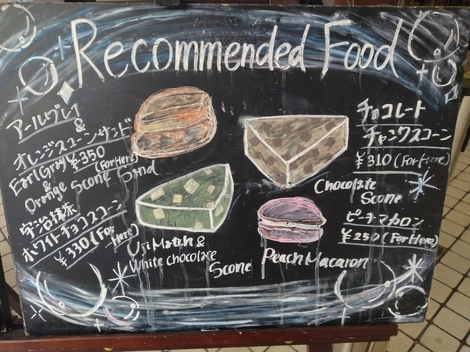 Recommended Food
アールグレイ
&
オレンジスコーンサンド
¥350
(For Here)
Earl Gray
&
Orange Scone Sand
チョコレート
チャンクスコーン
¥310 (For Here)
Chocolate
Scone
宇治抹茶
ホワイトチョコスコーン
¥330 (For Here)
Uji Match &
White chocolate
Scone
ピーチマカロン
¥250 (For Here)
Peach Macaron